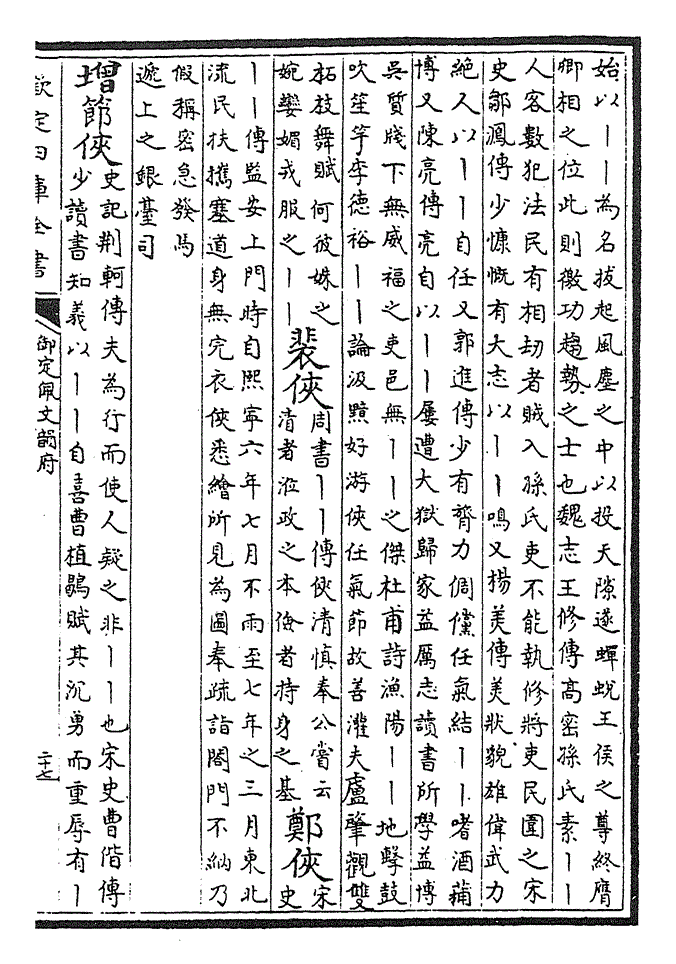 始以丨丨為名拔起風塵之中以投天隙遂蟬蛻王侯之尊終膺
卿相之位此則徼功趨勢之士也魏志王修傳高密孫氏素丨丨
人客數犯法民有相劫者賊入孫氏吏不能執修將吏民圍之宋
史鄒鳳傳少慷慨有大志以丨丨鳴又楊美傳美狀貌雄偉武力
絶人以丨丨自任又郭進傳少有膂力倜儻任氣結丨丨嗜酒蒱
博又陳亮傳亮自以丨丨屢遭大獄歸家益厲志讀書所學益博
吳質牋下無威福之吏邑無丨丨之傑杜甫詩漁陽丨丨地擊鼓
吹笙竽李德裕丨丨論汲黯好游俠任氣節故善灌夫盧肇觀雙
柘枝舞賦何彼姝之
婉孌媚戎服之丨丨
裴俠
周書丨丨傳俠清慎奉公嘗云
清者涖政之本儉者持身之基
鄭俠
宋
史
丨丨傳監安上門時自熙寧六年七月不雨至七年之三月東北
流民扶攜塞道身無完衣俠悉繪所見為圖奉疏詣閤門不納乃
假稱密急發馬
遞上之銀臺司
增節俠
史記荆軻傳夫為行而使人疑之非丨丨也宋史曹偕傳
少讀書知義以丨丨自喜曹植鶡賦其沉勇而重辱有丨
欽定四庫全書
御定佩文韻府
二十七